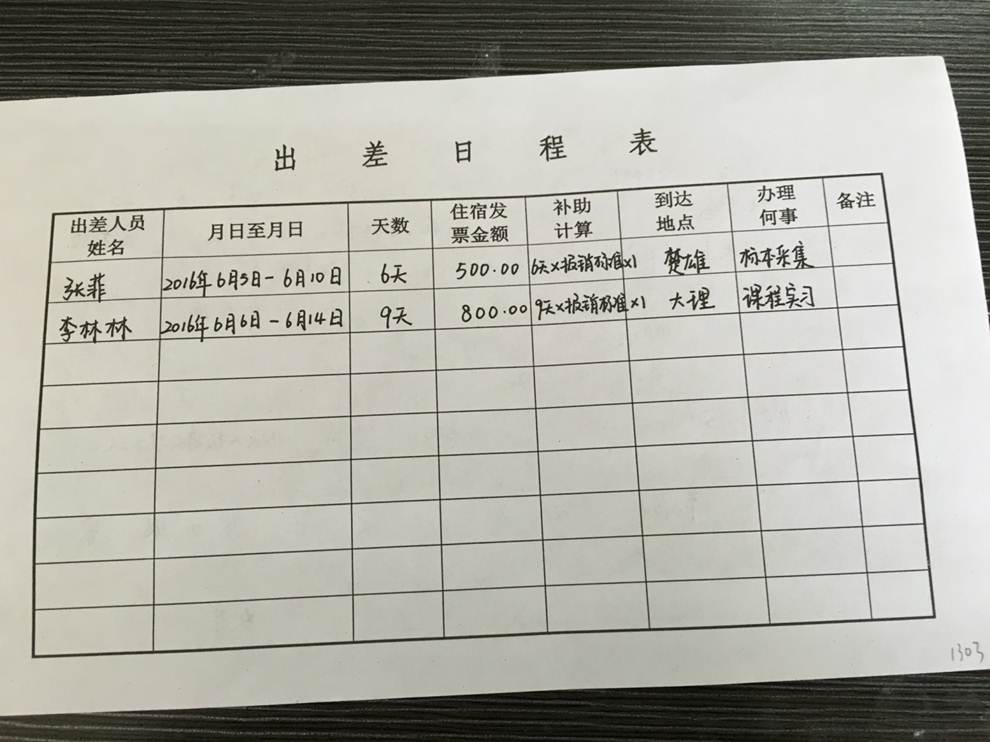 出差日程表
出差人员姓名 月日至月日 天数 住宿发票金额 补助计算 到达地点 办理何事 备注
张菲 2016年6月5日-6月10日 6天 500.00 6天×报销标准×1 楚雄 标本采集
李林林 2016年6月6日-6月14日 9天 800.00 9天×报销标准×1 大理 课程实习
1303